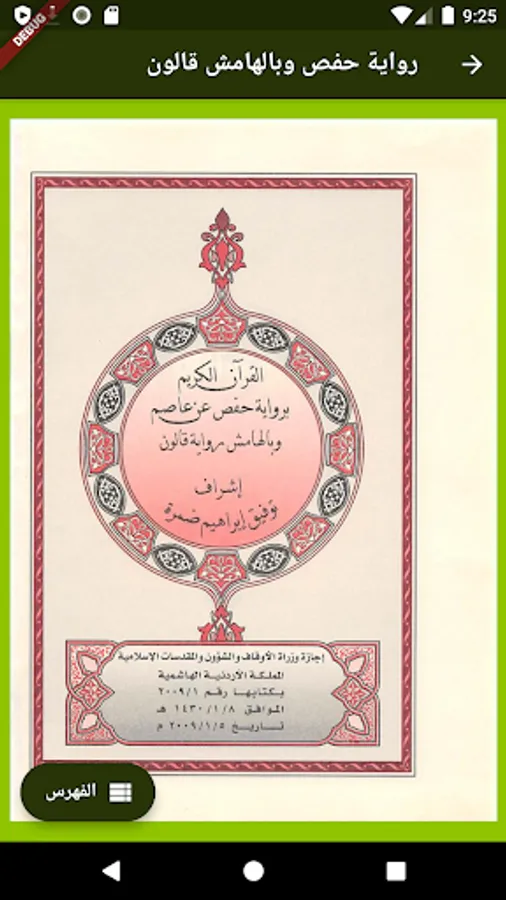 9:25
DEBUG
رواية حفص وبالهامش قالون
القرآن الكريم
برواية حفص عن عاصم
وبالهامش رواية قالون
إشراف
توفيق إبراهيم ضمرة
إجازة وزراة الأوقاف والشؤون والمقدسات الإسلامية
المملكة الأردنية الهاشمية
بكتابها رقم ٢٠٠٩/١
الموافق ١٤٣٠/١/٨ هـ
تاريخ ٢٠٠٩/١/٥ م
الفهرس